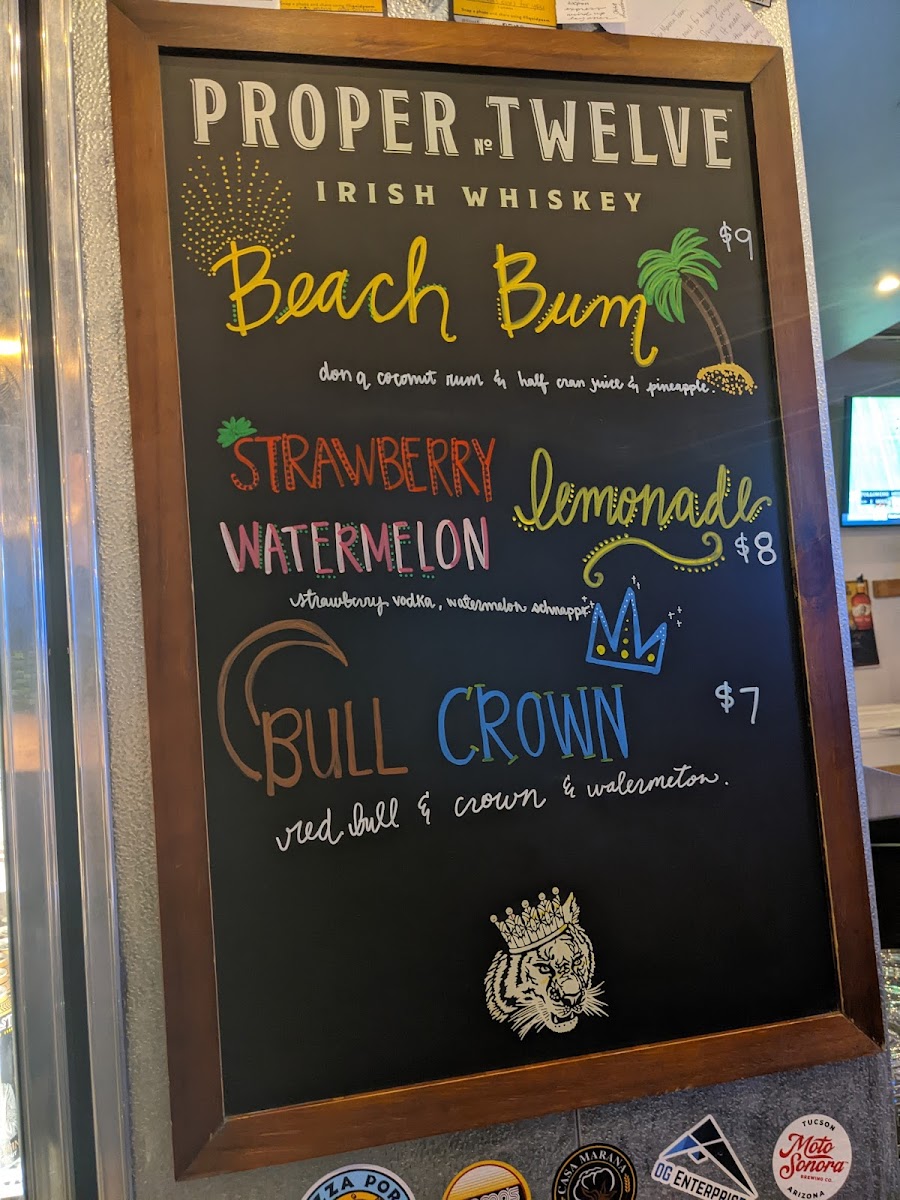 PROPER No. TWELVE
IRISH WHISKEY
$9
Beach Bum
don q coconut rum & half cran juice & pineapple.
STRAWBERRY
WATERMELON
lemonade
$8
strawberry vodka, watermelon schnapps
BULL CROWN
$7
red bull & crown & watermelon.
ZZA POR
CASA MARANA
OG ENTERPRI
TUCSON
Moto Sonora
BREWING CO.
ARIZONA